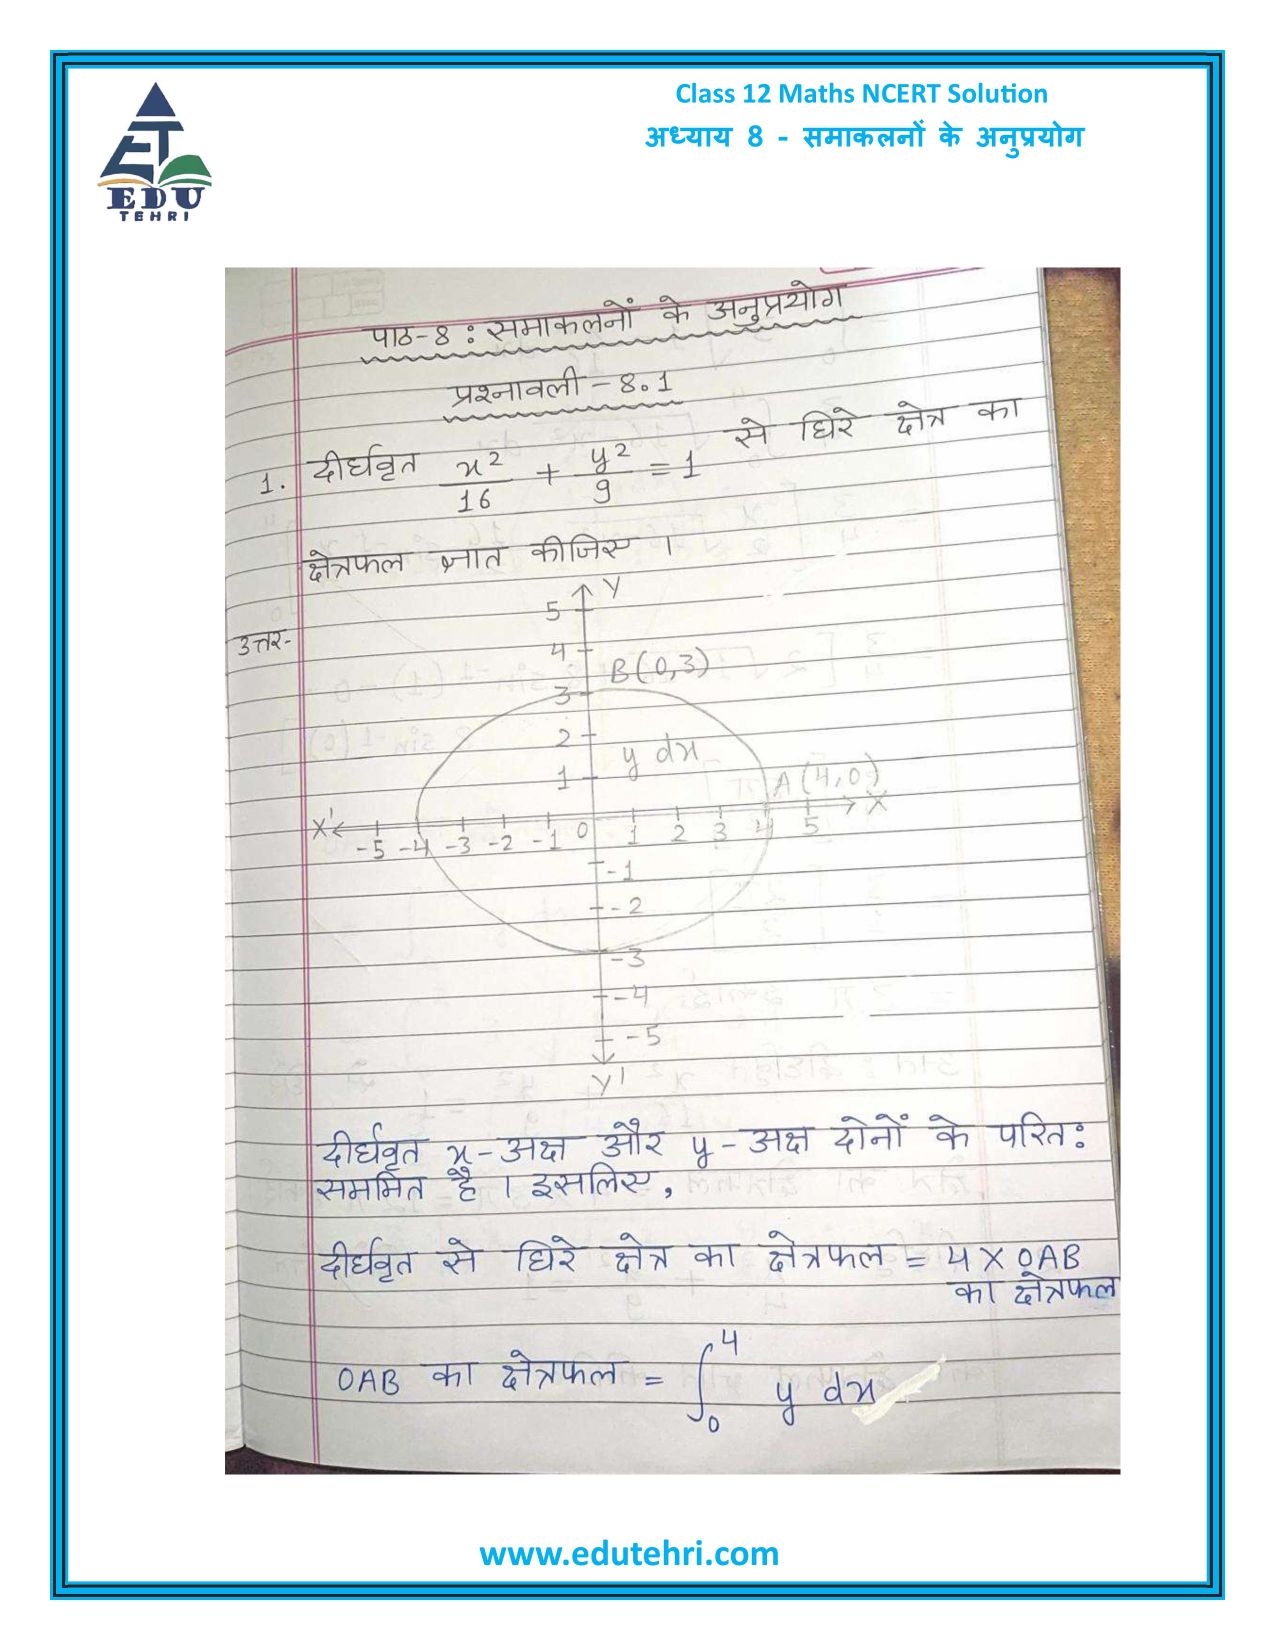 Class 12 Maths NCERT Solution
अध्याय 8 - समाकलनों के अनुप्रयोग
EDU
TEHRI
पाठ-8 : समाकलनों के अनुप्रयोग
प्रश्नावली - 8.1
1. दीर्घवृत x²/16 + y²/9 = 1 से घिरे क्षेत्र का
क्षेत्रफल ज्ञात कीजिए ।
उत्तर-
Y
5
4
B(0,3)
3
2
y dx
1
A(4,0)
X' -5 -4 -3 -2 -1 0 1 2 3 4 5 X
-1
-2
-3
-4
-5
Y'
दीर्घवृत x-अक्ष और y-अक्ष दोनों के परितः
सममित है । इसलिए,
दीर्घवृत से घिरे क्षेत्र का क्षेत्रफल = 4 X OAB
का क्षेत्रफल
OAB का क्षेत्रफल = ∫₀⁴ y dx
www.edutehri.com